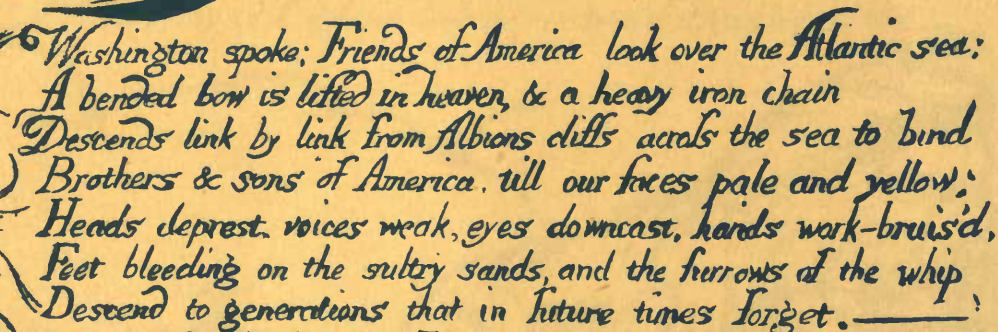 Washington spoke; Friends of America look over the Atlantic sea;
A bended bow is lifted in heaven, & a heavy iron chain
Descends link by link from Albions cliffs across the sea to bind
Brothers & sons of America. till our faces pale and yellow;
Heads deprest. voices weak, eyes downcast, hands work-bruis'd,
Feet bleeding on the sultry sands, and the furrows of the whip
Descend to generations that in future times forget.